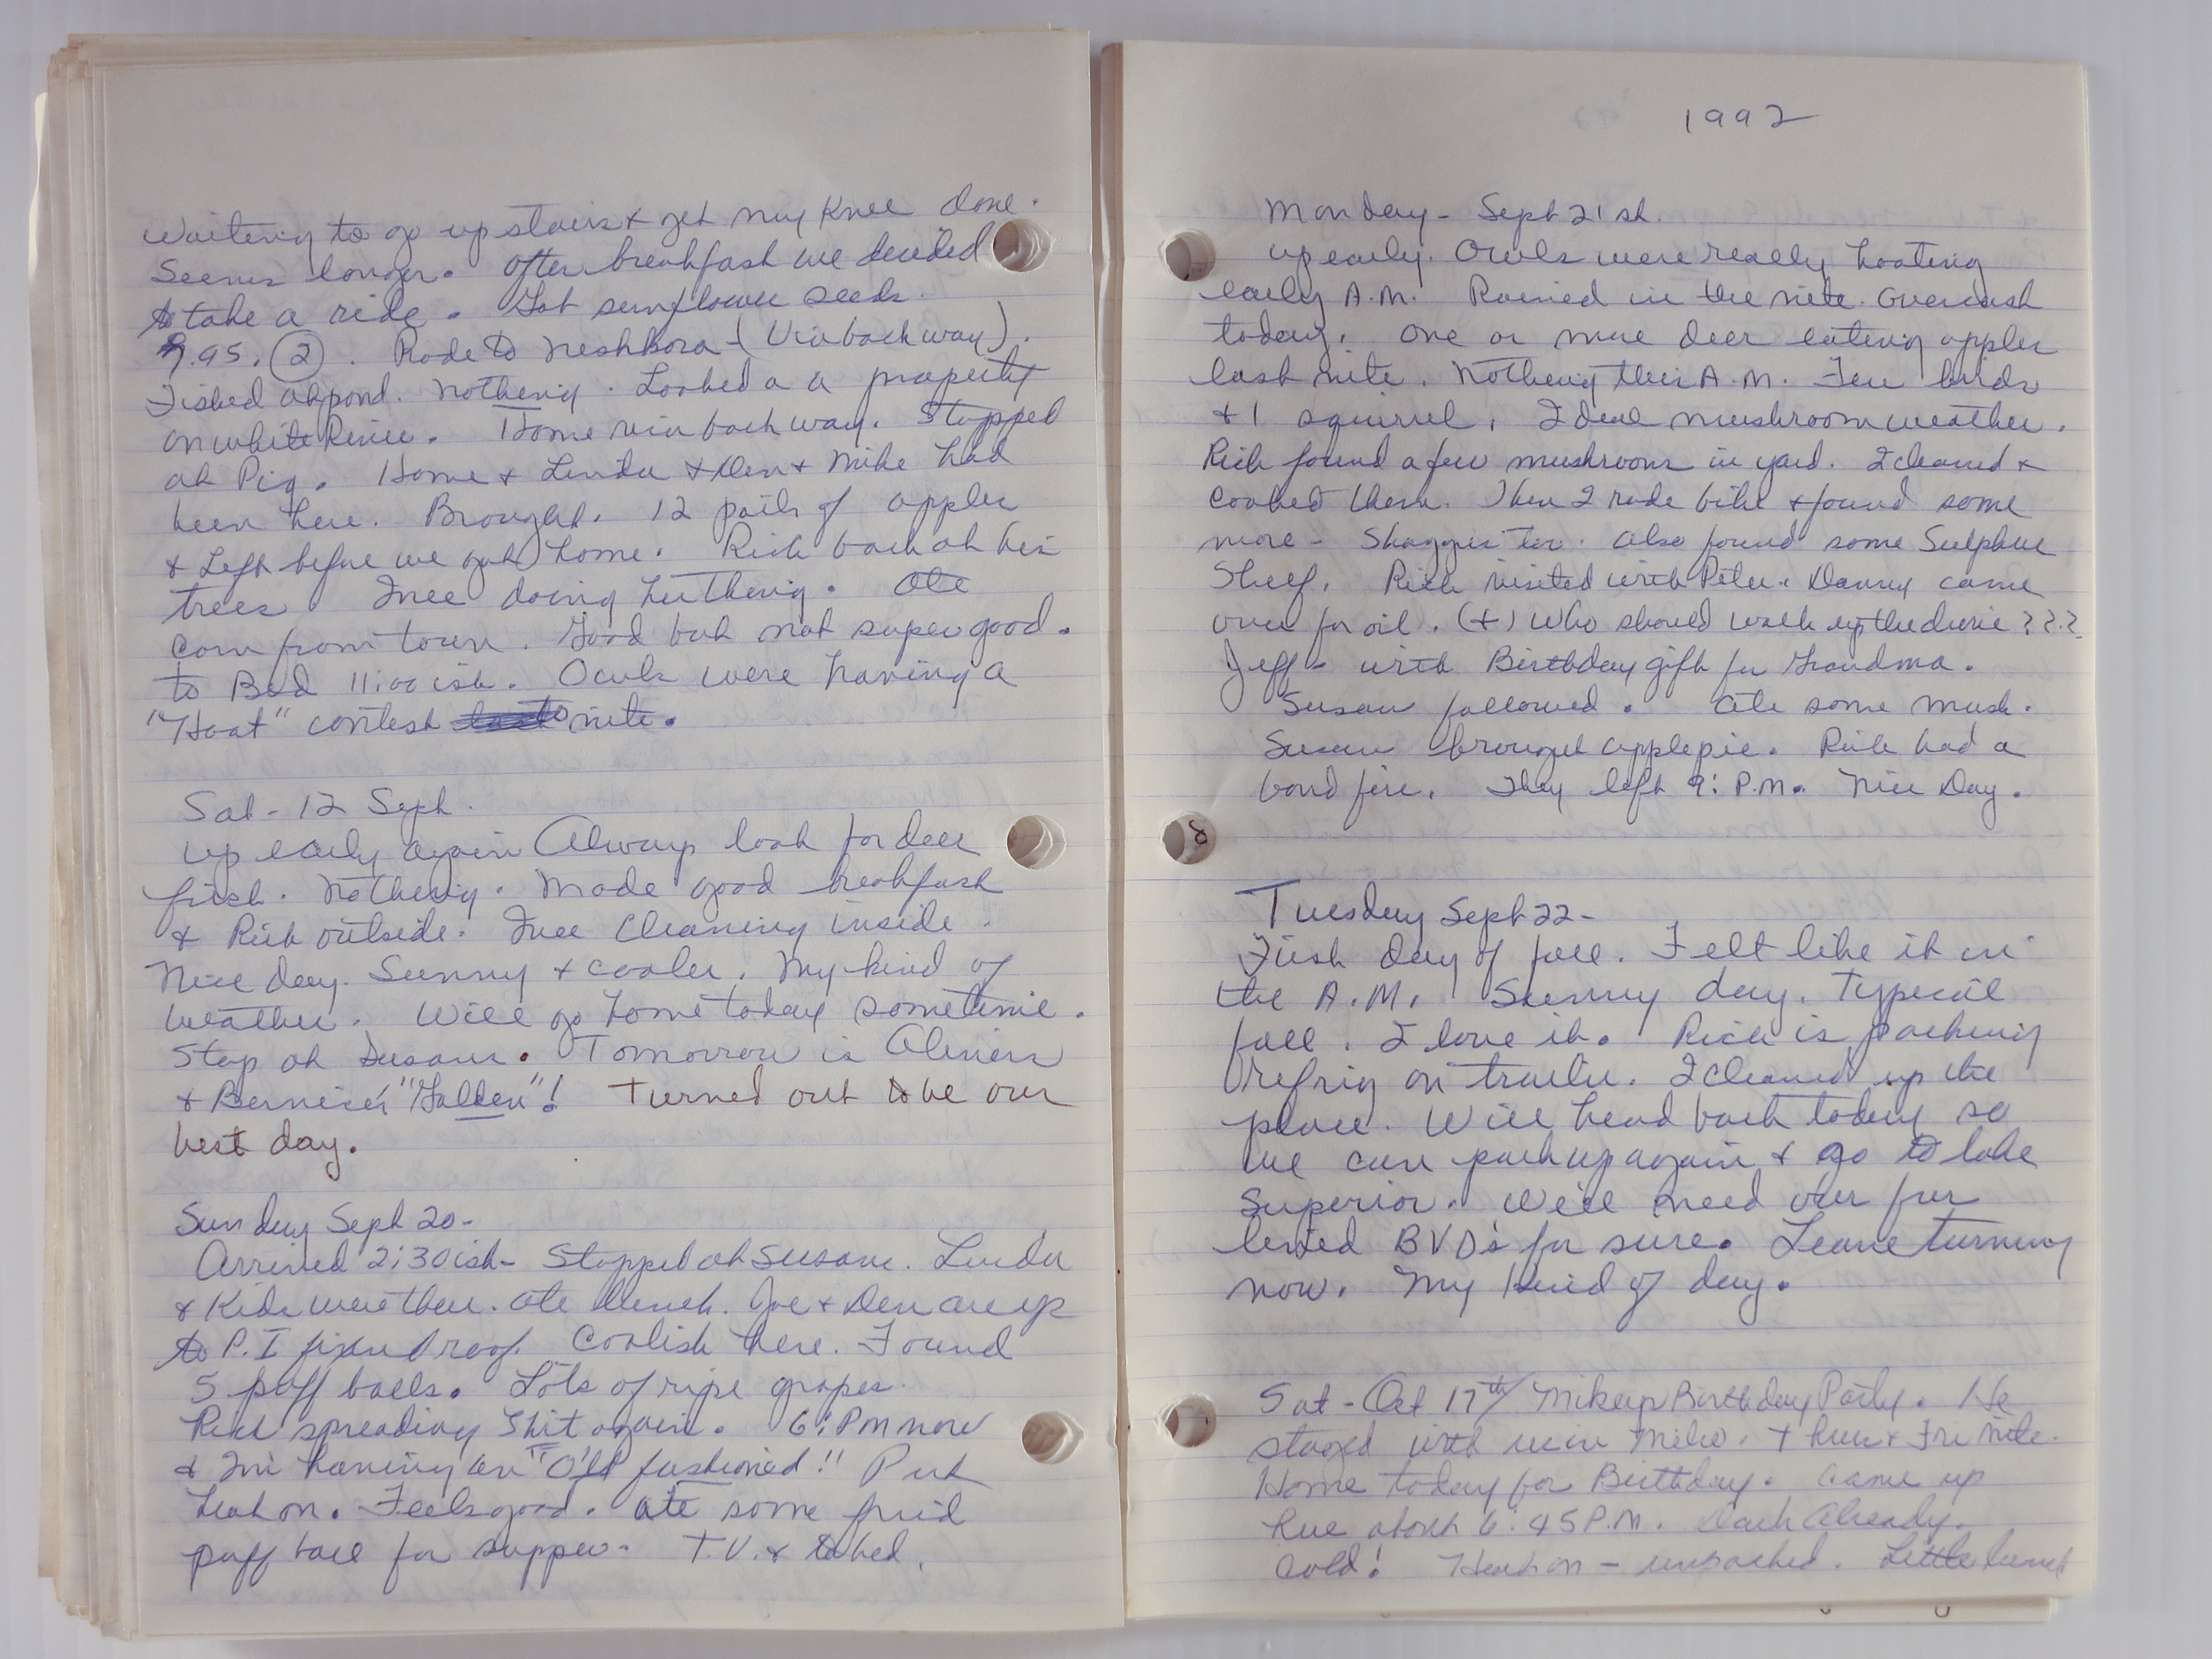 Waiting to go up stairs & get my Knee done.
Seems longer. After breakfast we decided
to take a ride. Got sunflower seeds.
9.95. (2). Rode to Neshkora - (Via back way).
Fished at pond. Nothing. Looked a a property
on white River. Home via back way. Stopped
at Pig. Home & Linda & Den & Mike had
been here. Brought. 12 pails of apples
& Left before we got home. Rick back at his
trees. Inee doing her thing. Ate
corn from town. Good but not super good.
to Bed 11:00 ish. Owls were having a
"Hoot" contest nite.
Sat - 12 Sept.
up early again Always look for deer
first. Nothing. Made good breakfast
& Rick outside. Inee Cleaning inside.
Nice day. Sunny & cooler. My kind of
weather. Will go home today sometime.
Stop at Susans. Tomorrow is
& Bernice's "Golden"! Turned out to be our
best day.
Sunday Sept 20-
Arrived 2:30 ish - Stopped at Susans. Linda
& Kids were there. Ate lunch. Joe & Den are up
to P.I roof. Coolish here. Found
5 puff balls. Lots of ripe grapes.
Rick spreading shit again. 6: PM now
& Im having an "Old fashioned"! Put
heat on. Feels good. Ate some fried
puff ball for supper. T.V. & to bed.
1992
Monday - Sept 21st.
up early. Owls were really hooting
early A.M. Rained in the nite. Overcast
today. One or more deer eating apples
last nite. Nothing this A.M. Few birds
& 1 squirrel. Ideal mushroom weather.
Rick found a few mushrooms in yard. I cleaned &
cooked them. Then I rode bike & found some
more - Shaggies too. Also found some Sulphur
Shelf. Rick visited with Peter. Danny came
over for oil. (+) Who should walk up the drive ? ? ?
Jeff - with Birthday gift for Grandma.
Susan followed. Ate some mush.
Susan brought apple pie. Rick had a
bond fire. They left 9: P.M. Nice Day.
Tuesday Sept 22-
First day of fall. Felt like it in
the A.M. Sunny day. Typical
fall. I love it. Rick is packing
refrig on trailer. I cleaned up the
place. Will head back today so
we can pack up again & go to lake
Superior. We'll need our fur
lined BVD's for sure. Leave turning
now. My kind of day.
Sat - Oct 17th/ Mikeys Birthday Party. He
stayed with us in Milw. Thur & Fri nite.
Home today for Birthday. Came up
here about 6:45 P.M. Dark Already.
Cold! Heat on - unpacked. Little lunch